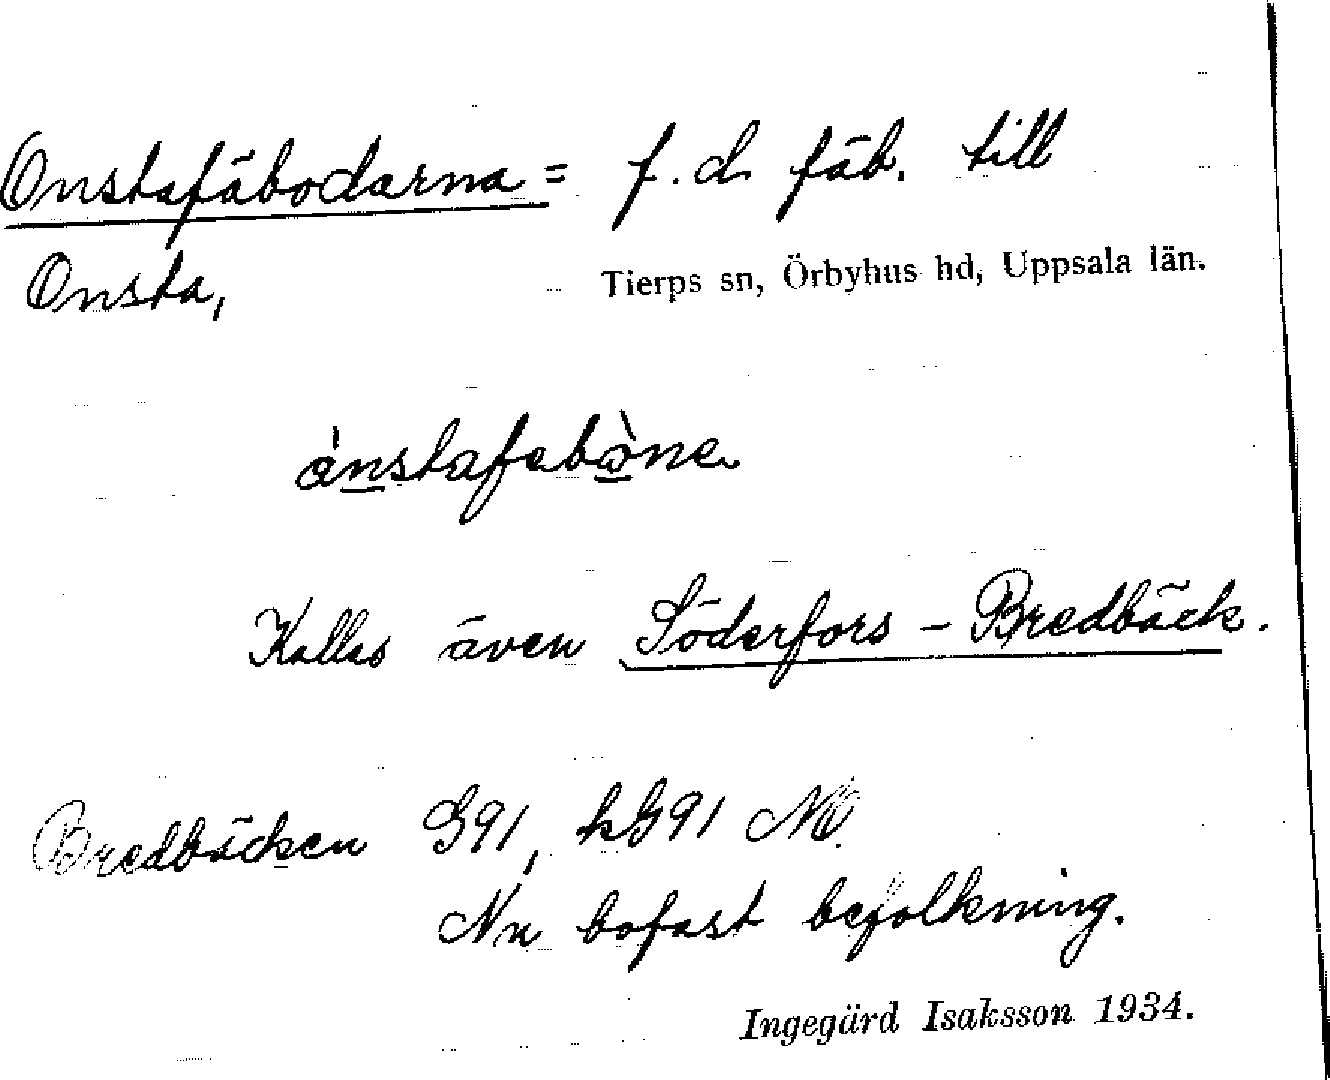 Onstafäbodarna = f.d. fäb. till
Onsta,
Tierps sn, Örbyhus hd, Uppsala län.
ànstafebòne
Kallas även Söderfors - Bredbäck.
Bredbäcken G91, hG91 NV.
Nu bofast befolkning.
Ingegärd Isaksson 1934.